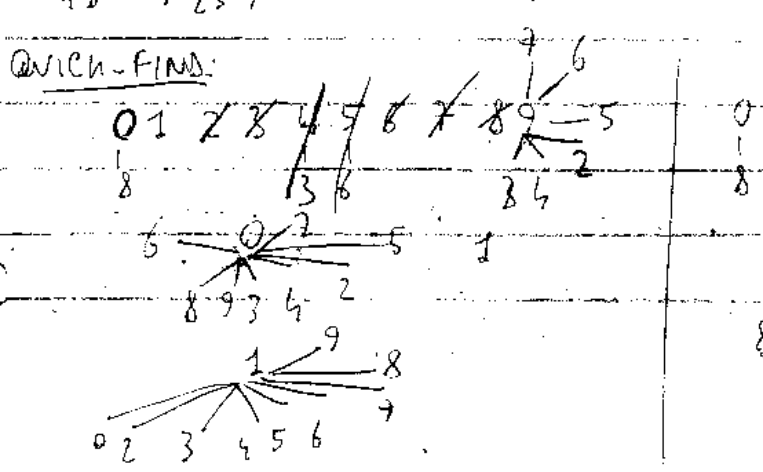 QUICK-FIND:
7 6
0 1 2 3 4 5 6 7 8 9 5 0
2
8 3 6 3 4 8
6 0 7 5 1
8 9 3 4 2
1 9
8
7
0 2 3 4 5 6